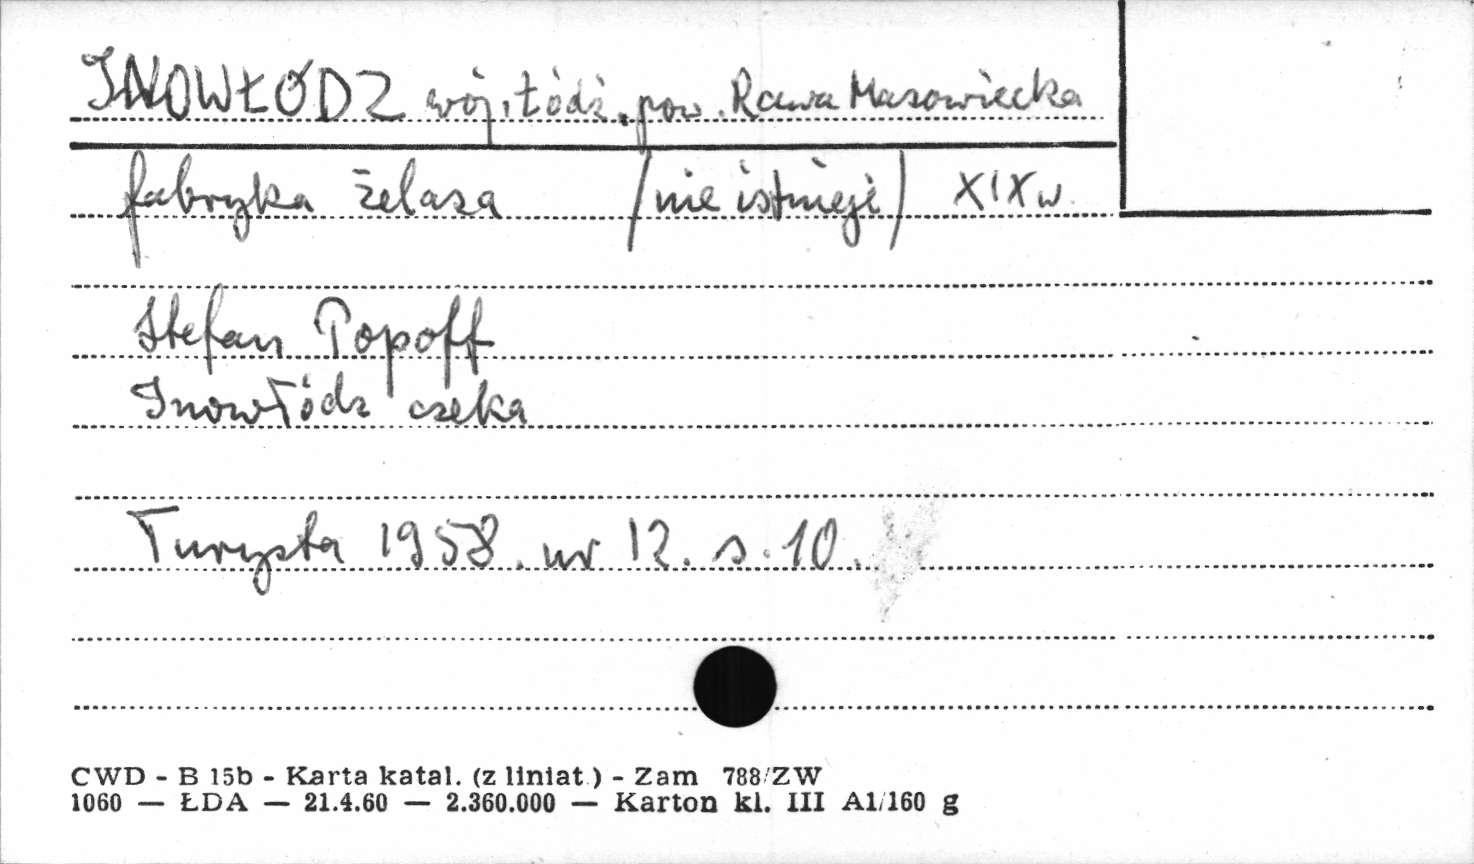 INOWŁÓDZ woj. Łódź. pow. Rawa Mazowiecka
fabryka żelaza /nie istnieje/ XIX w.
Stefan Popoff
Inowłódz czeka
Turysta 1958. nr 12. s. 10.
CWD - B 15b - Karta katal. (z liniat.) - Zam 788/ZW
1060 — ŁDA — 21.4.60 — 2.360.000 — Karton kl. III A1/160 g